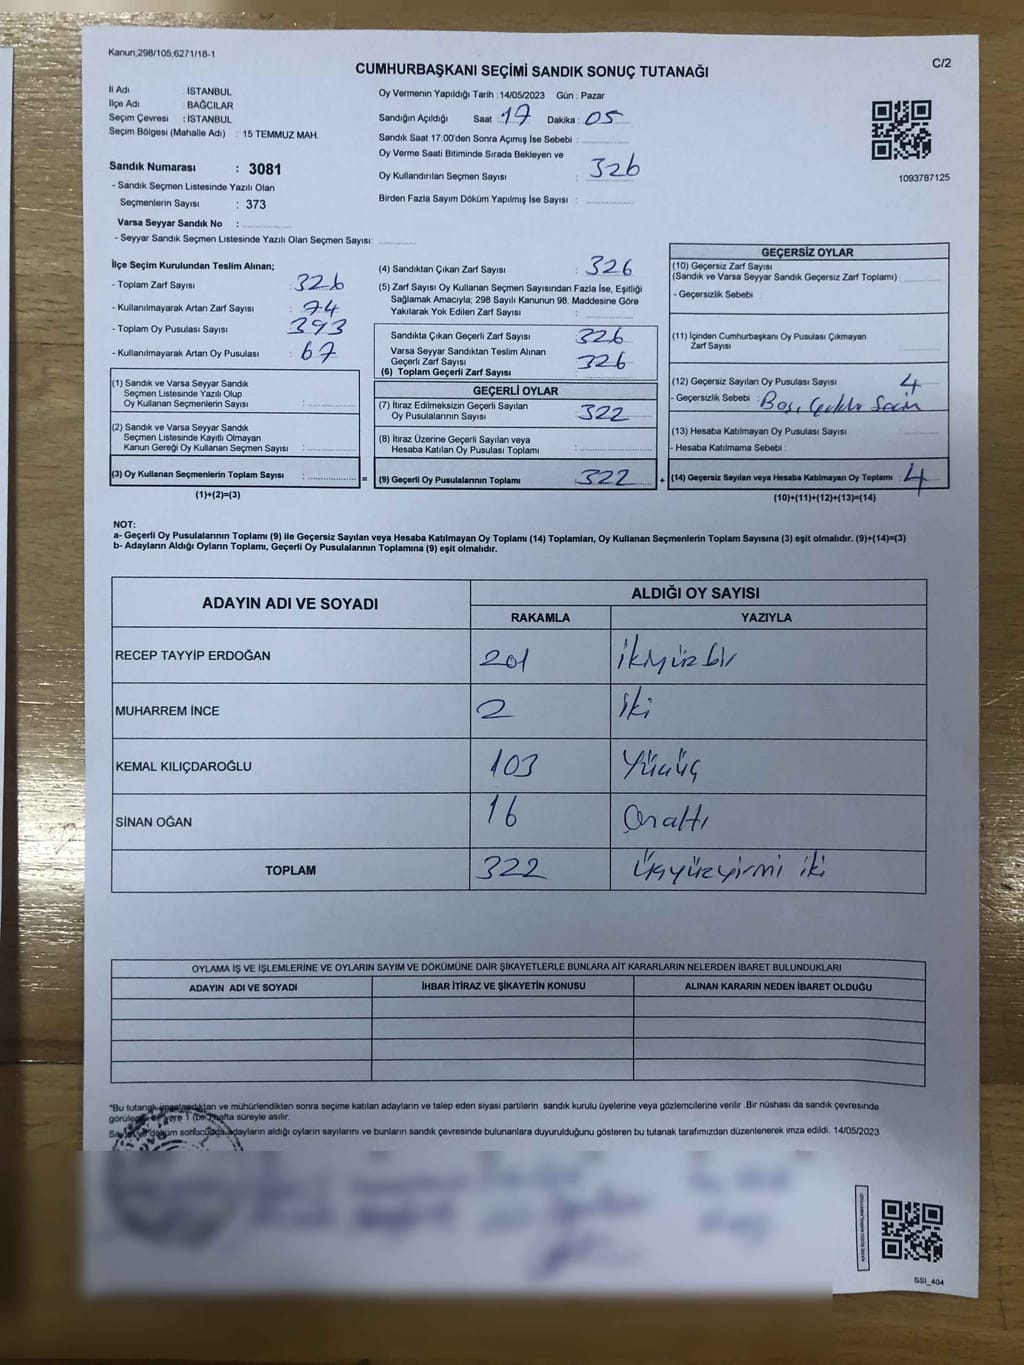 Kanun,298/105,6271/18-1
C/2
CUMHURBAŞKANI SEÇİMİ SANDIK SONUÇ TUTANAĞI
İl Adı : İSTANBUL
İlçe Adı : BAĞCILAR
Seçim Çevresi : İSTANBUL
Seçim Bölgesi (Mahalle Adı) : 15 TEMMUZ MAH.
Sandık Numarası : 3081
- Sandık Seçmen Listesinde Yazılı Olan
Seçmenlerin Sayısı : 373
Varsa Seyyar Sandık No :
- Seyyar Sandık Seçmen Listesinde Yazılı Olan Seçmen Sayısı:
Oy Vermenin Yapıldığı Tarih :14/05/2023 Gün : Pazar
Sandığın Açıldığı Saat : 17 Dakika : 05
Sandık Saat 17:00'den Sonra Açımış İse Sebebi :
Oy Verme Saati Bitiminde Sırada Bekleyen ve
Oy Kullandırılan Seçmen Sayısı : 326
Birden Fazla Sayım Döküm Yapılmış İse Sayısı :
1093787125
İlçe Seçim Kurulundan Teslim Alınan;
- Toplam Zarf Sayısı : 326
- Kullanılmayarak Artan Zarf Sayısı : 74
- Toplam Oy Pusulası Sayısı : 393
- Kullanılmayarak Artan Oy Pusulası : 67
(1) Sandık ve Varsa Seyyar Sandık
Seçmen Listesinde Yazılı Olup
Oy Kullanan Seçmenlerin Sayısı :
(2) Sandık ve Varsa Seyyar Sandık
Seçmen Listesinde Kayıtlı Olmayan
Kanun Gereği Oy Kullanan Seçmen Sayısı :
(3) Oy Kullanan Seçmenlerin Toplam Sayısı :
(1)+(2)=(3)
(4) Sandıktan Çıkan Zarf Sayısı : 326
(5) Zarf Sayısı Oy Kullanan Seçmen Sayısından Fazla İse, Eşitliği
Sağlamak Amacıyla; 298 Sayılı Kanunun 98. Maddesine Göre
Yakılarak Yok Edilen Zarf Sayısı :
Sandıkta Çıkan Geçerli Zarf Sayısı : 326
Varsa Seyyar Sandıktan Teslim Alınan
Geçerli Zarf Sayısı : 326
(6) Toplam Geçerli Zarf Sayısı :
GEÇERLİ OYLAR
(7) İtiraz Edilmeksizin Geçerli Sayılan
Oy Pusulalarının Sayısı : 322
(8) İtiraz Üzerine Geçerli Sayılan veya
Hesaba Katılan Oy Pusulası Toplamı :
= (9) Geçerli Oy Pusulalarının Toplamı : 322
GEÇERSİZ OYLAR
(10) Geçersiz Zarf Sayısı
(Sandık ve Varsa Seyyar Sandık Geçersiz Zarf Toplamı) :
- Geçersizlik Sebebi :
(11) İçinden Cumhurbaşkanı Oy Pusulası Çıkmayan
Zarf Sayısı :
(12) Geçersiz Sayılan Oy Pusulası Sayısı : 4
- Geçersizlik Sebebi : Boş,
(13) Hesaba Katılmayan Oy Pusulası Sayısı :
- Hesaba Katılmama Sebebi :
+ (14) Geçersiz Sayılan veya Hesaba Katılmayan Oy Toplamı : 4
(10)+(11)+(12)+(13)=(14)
NOT:
a- Geçerli Oy Pusulalarının Toplamı (9) ile Geçersiz Sayılan veya Hesaba Katılmayan Oy Toplamı (14) Toplamları, Oy Kullanan Seçmenlerin Toplam Sayısına (3) eşit olmalıdır. (9)+(14)=(3)
b- Adayların Aldığı Oyların Toplamı, Geçerli Oy Pusulalarının Toplamına (9) eşit olmalıdır.
ADAYIN ADI VE SOYADI ALDIĞI OY SAYISI
RAKAMLA YAZIYLA
RECEP TAYYİP ERDOĞAN 201 ikiyüzbir
MUHARREM İNCE 2 iki
KEMAL KILIÇDAROĞLU 103 Yüzüç
SİNAN OĞAN 16 Onaltı
TOPLAM 322 Üçyüzyirmi iki
OYLAMA İŞ VE İŞLEMLERİNE VE OYLARIN SAYIM VE DÖKÜMÜNE DAİR ŞİKAYETLERLE BUNLARA AİT KARARLARIN NELERDEN İBARET BULUNDUKLARI
ADAYIN ADI VE SOYADI İHBAR İTİRAZ VE ŞİKAYETİN KONUSU ALINAN KARARIN NEDEN İBARET OLDUĞU
*Bu tutanak imzalandıktan ve mühürlendikten sonra seçime katılan adayların ve talep eden siyasi partilerin sandık kurulu üyelerine veya gözlemcilerine verilir .Bir nüshası da sandık çevresinde
yere 1 (bir) hafta süreyle asılır.
döküm sonucunda adayların aldığı oyların sayılarını ve bunların sandık çevresinde bulunanlara duyurulduğunu gösteren bu tutanak tarafımızdan düzenlenerek imza edildi. 14/05/2023
SSI_404